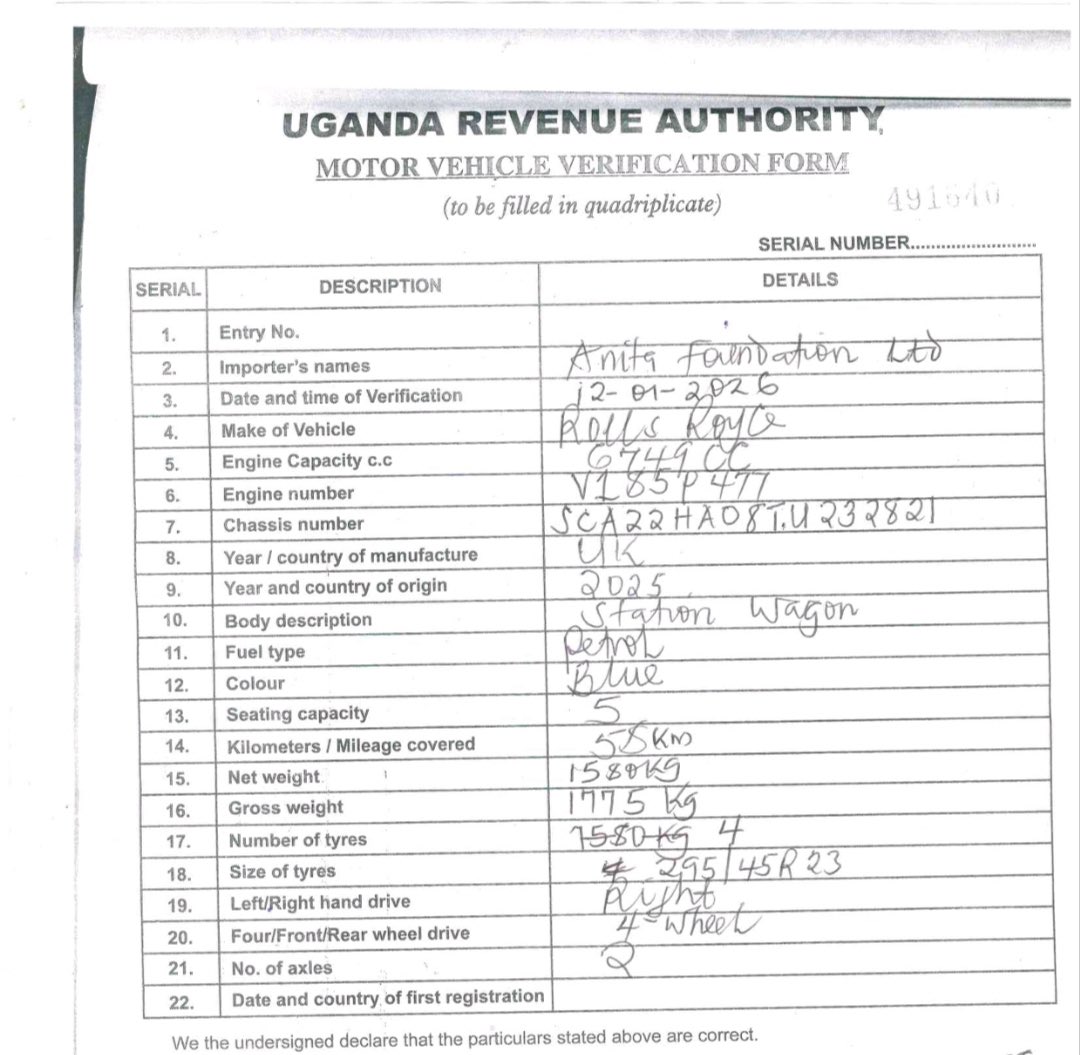 UGANDA REVENUE AUTHORITY
MOTOR VEHICLE VERIFICATION FORM
(to be filled in quadriplicate)
491640
SERIAL NUMBER..........................
SERIAL DESCRIPTION DETAILS
1. Entry No.
2. Importer's names Anita foundation Ltd
3. Date and time of Verification 12-01-2026
4. Make of Vehicle Rolls Royce
5. Engine Capacity c.c 6749 CC
6. Engine number V185P477
7. Chassis number SCA22HA08TU232821
8. Year / country of manufacture UK
9. Year and country of origin 2025
10. Body description Station Wagon
11. Fuel type Petrol
12. Colour Blue
13. Seating capacity 5
14. Kilometers / Mileage covered 58 Km
15. Net weight 1580KG
16. Gross weight 1775 Kg
17. Number of tyres 1580 KG 4
18. Size of tyres 4 295/45R23
19. Left/Right hand drive Right
20. Four/Front/Rear wheel drive 4-Wheel
21. No. of axles 2
22. Date and country of first registration
We the undersigned declare that the particulars stated above are correct.